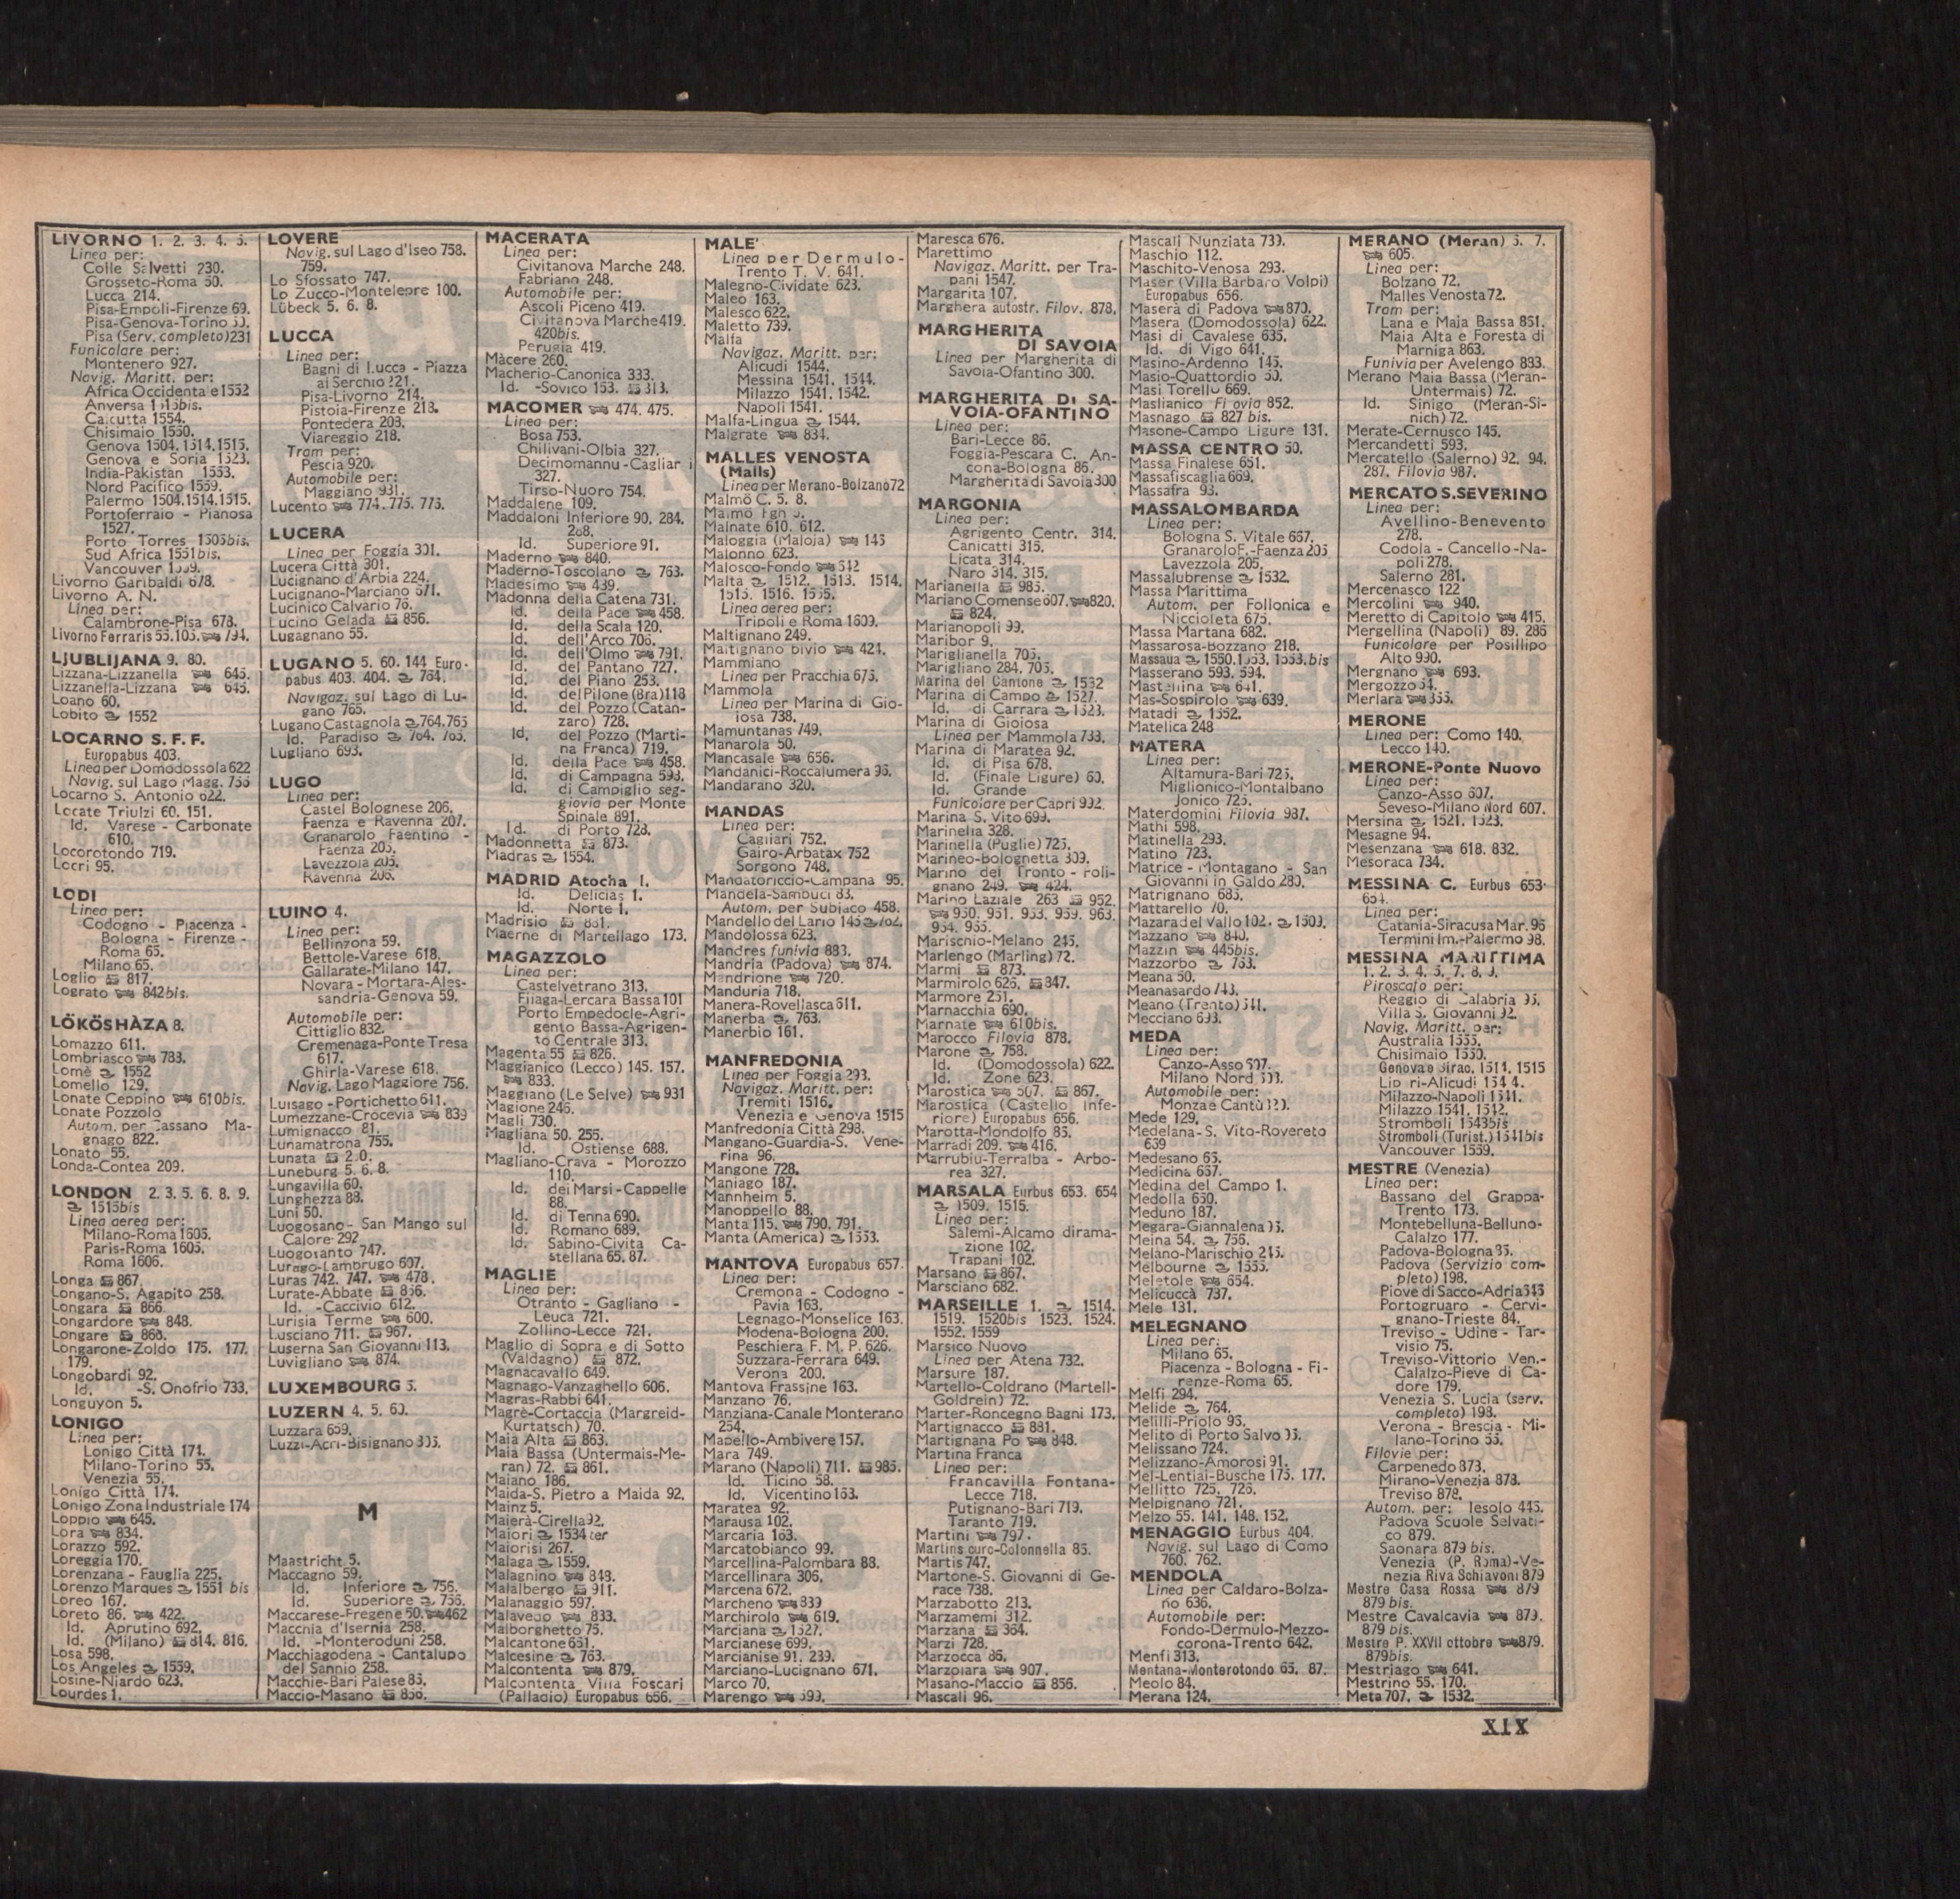 LIVORNO 1. 2. 3. 4. 5.
Linea per:
Colle Salvetti 230.
Grosseto-Roma 50.
Lucca 214.
Pisa-Empoli-Firenze 69.
Pisa-Genova-Torino 50.
Pisa (Serv. completo) 231
Funicolare per:
Montenero 927.
Navig. Maritt. per:
Africa Occidentale 1552
Anversa 1515bis.
Calcutta 1554.
Chisimaio 1550.
Genova 1504. 1514. 1515.
Genova e Soria 1523.
India-Pakistan 1553.
Nord Pacifico 1559.
Palermo 1504. 1514. 1515.
Portoferraio - Pianosa
1527.
Porto Torres 1505bis.
Sud Africa 1551bis.
Vancouver 1559.
Livorno Garibaldi 678.
Livorno A. N.
Linea per:
Calambrone-Pisa 678.
Livorno Ferraris 55. 105. 794.
LJUBLIJANA 9. 80.
Lizzana-Lizzanella 645.
Lizzanella-Lizzana 645.
Loano 60.
Lobito 1552
LOCARNO S. F. F.
Europabus 403.
Linea per Domodossola 622
Navig. sul Lago Magg. 756
Locarno S. Antonio 622.
Locate Triulzi 60. 151.
Id. Varese - Carbonate
610.
Locorotondo 719.
Locri 95.
LODI
Linea per:
Codogno - Piacenza -
Bologna - Firenze -
Roma 65.
Milano 65.
Loglio 817.
Lograto 842bis.
LÖKÖSHÀZA 8.
Lomazzo 611.
Lombriasco 783.
Lomè 1552
Lomello 129.
Lonate Ceppino 610bis.
Lonate Pozzolo
Autom. per Cassano Ma-
gnago 822.
Lonato 55.
Londa-Contea 209.
LONDON 2. 3. 5. 6. 8. 9.
1515bis
Linea aerea per:
Milano-Roma 1606.
Paris-Roma 1605.
Roma 1606.
Longa 867.
Longano-S. Agapito 258.
Longara 866.
Longardore 848.
Longare 868.
Longarone-Zoldo 175. 177.
179.
Longobardi 92.
Id. -S. Onofrio 733.
Longuyon 5.
LONIGO
Linea per:
Lonigo Città 174.
Milano-Torino 55.
Venezia 55.
Lonigo Città 174.
Lonigo Zona Industriale 174
Loppio 645.
Lora 834.
Lorazzo 592.
Loreggia 170.
Lorenzana - Fauglia 225.
Lorenzo Marques 1551 bis
Loreo 167.
Loreto 86. 422.
Id. Aprutino 692.
Id. (Milano) 814. 816.
Losa 598.
Los Angeles 1559.
Losine-Niardo 623.
Lourdes 1.
LOVERE
Navig. sul Lago d'Iseo 758.
759.
Lo Sfossato 747.
Lo Zucco-Montelepre 100.
Lübeck 5. 6. 8.
LUCCA
Linea per:
Bagni di Lucca - Piazza
al Serchio 221.
Pisa-Livorno 214.
Pistoia-Firenze 218.
Pontedera 203.
Viareggio 218.
Tram per:
Pescia 920.
Automobile per:
Maggiano 931.
Lucento 774. 775. 776.
LUCERA
Linea per Foggia 301.
Lucera Città 301.
Lucignano d'Arbia 224.
Lucignano-Marciano 671.
Lucinico Calvario 76.
Lucino Gelada 856.
Lugagnano 55.
LUGANO 5. 60. 144 Euro-
pabus 403. 404. 764.
Navigaz. sul Lago di Lu-
gano 765.
Lugano Castagnola 764. 765
Id. Paradiso 764. 765.
Lugliano 693.
LUGO
Linea per:
Castel Bolognese 206.
Faenza e Ravenna 207.
Granarolo Faentino -
Faenza 205.
Lavezzola 205.
Ravenna 206.
LUINO 4.
Linea per:
Bellinzona 59.
Bettole-Varese 618.
Gallarate-Milano 147.
Novara - Mortara-Ales-
sandria-Genova 59.
Automobile per:
Cittiglio 832.
Cremenaga-Ponte Tresa
617.
Ghirla-Varese 618.
Navig. Lago Maggiore 756.
Luisago - Portichetto 611.
Lumezzane-Crocevia 839
Lumignacco 81.
Lunamatrona 755.
Lunata
Luneburg 5. 6. 8.
Lungavilla 60.
Lunghezza 88.
Luni 50.
Luogosano - San Mango sul
Calore 292
Luogosanto 747.
Lurago-Lambrugo 607.
Luras 742. 747. 478.
Lurate-Abbate 856.
Id. -Caccivio 612.
Lurisia Terme 600.
Lusciano 711. 967.
Luserna San Giovanni 113.
Luvigliano 874.
LUXEMBOURG 5.
LUZERN 4. 5. 60.
Luzzara 659.
Luzzi-Acri-Bisignano 305.
M
Maastricht 5.
Maccagno 59.
Id. Inferiore 756.
Id. Superiore 756.
Maccarese-Fregene 50. 462
Macchia d'Isernia 258.
Id. -Monteroduni 258.
Macchiagodena - Cantalupo
del Sannio 258.
Macchie-Bari Palese 85.
Maccio-Masano 856.
MACERATA
Linea per:
Civitanova Marche 248.
Fabriano 248.
Automobile per:
Ascoli Piceno 419.
Civitanova Marche 419.
420bis.
Perugia 419.
Màcere 260.
Macherio-Canonica 333.
Id. -Sovico 153. 313.
MACOMER 474. 475.
Linea per:
Bosa 753.
Chilivani-Olbia 327.
Decimomannu-Cagliari
327.
Tirso-Nuoro 754.
Maddalene 109.
Maddaloni Inferiore 90. 284.
268.
Id. Superiore 91.
Maderno 840.
Maderno-Toscolano 763.
Madesimo 439.
Madonna della Catena 731.
Id. della Pace 458.
Id. della Scala 120.
Id. dell'Arco 706.
Id. dell'Olmo 791.
Id. del Pantano 727.
Id. del Piano 253.
Id. del Pilone (Bra) 118
Id. del Pozzo (Catan-
zaro) 728.
Id. del Pozzo (Marti-
na Franca) 719.
Id. della Pace 458.
Id. di Campagna 593.
Id. di Campiglio seg-
giovia per Monte
Spinale 891.
Id. di Porto 728.
Madonnetta 873.
Madras 1554.
MADRID Atocha 1.
Id. Delicias 1.
Id. Norte 1.
Madrisio 881.
Maerne di Martellago 173.
MAGAZZOLO
Linea per:
Castelvetrano 313.
Filaga-Lercara Bassa 101
Porto Empedocle-Agri-
gento Bassa-Agrigen-
to Centrale 313.
Magenta 55 826.
Maggianico (Lecco) 145. 157.
833.
Maggiano (Le Selve) 931
Magione 246.
Magli 730.
Magliana 50. 255.
Id. Ostiense 688.
Magliano-Crava - Morozzo
110.
Id. dei Marsi-Cappelle
88.
Id. di Tenna 690.
Id. Romano 689.
Id. Sabino-Civita Ca-
stellana 65. 87.
MAGLIE
Linea per:
Otranto - Gagliano -
Leuca 721.
Zollino-Lecce 721.
Maglio di Sopra e di Sotto
(Valdagno) 872.
Magnacavallo 649.
Magnago-Vanzaghello 606.
Magras-Rabbi 641.
Magrè-Cortaccia (Margreid-
Kurtatsch) 70.
Maia Alta 863.
Maia Bassa (Untermais-Me-
ran) 72. 861.
Maiano 186.
Maida-S. Pietro a Maida 92.
Mainz 5.
Maierà-Cirella 92.
Maiori 1534 ter
Maiorisi 267.
Malaga 1559.
Malagnino 848.
Malalbergo 911.
Malanaggio 597.
Malavedo 833.
Malborghetto 75.
Malcantone 651.
Malcesine 763.
Malcontenta 879.
Malcontenta Villa Foscari
(Palladio) Europabus 656.
MALE'
Linea per Dermulo-
Trento T. V. 641.
Malegno-Cividate 623.
Maleo 163.
Malesco 622.
Maletto 739.
Malfa
Navigaz. Maritt. per:
Alicudi 1544.
Messina 1541. 1544.
Milazzo 1541. 1542.
Napoli 1541.
Malfa-Lingua 1544.
Malgrate 834.
MALLES VENOSTA
(Malls)
Linea per Merano-Bolzano 72
Malmö C. 5. 8.
Malmö Fgh 5.
Malnate 610. 612.
Maloggia (Maloja) 145
Malonno 623.
Malosco-Fondo 642
Malta 1512. 1513. 1514.
1515. 1516. 1555.
Linea aerea per:
Tripoli e Roma 1609.
Maltignano 249.
Maltignano bivio 424.
Mammiano
Linea per Pracchia 675.
Mammola
Linea per Marina di Gio-
iosa 738.
Mamuntanas 749.
Manarola 50.
Mancasale 656.
Mandanici-Roccalumera 96.
Mandarano 320.
MANDAS
Linea per:
Cagliari 752.
Gairo-Arbatax 752
Sorgono 748.
Mandatoriccio-Campana 95.
Mandela-Sambuci 83.
Autom. per Subiaco 458.
Mandello del Lario 145 762.
Mandolossa 623.
Mandres funivia 883.
Mandria (Padova) 874.
Mandrione 720.
Manduria 718.
Manera-Rovellasca 611.
Manerba 763.
Manerbio 161.
MANFREDONIA
Linea per Foggia 293.
Navigaz. Maritt. per:
Tremiti 1516.
Venezia e Genova 1515
Manfredonia Città 298.
Mangano-Guardia-S. Vene-
rina 96.
Mangone 728.
Maniago 187.
Mannheim 5.
Manoppello 88.
Manta 115. 790. 791.
Manta (America) 1553.
MANTOVA Europabus 657.
Linea per:
Cremona - Codogno -
Pavia 163.
Legnago-Monselice 163.
Modena-Bologna 200.
Peschiera F. M. P. 626.
Suzzara-Ferrara 649.
Verona 200.
Mantova Frassine 163.
Manzano 76.
Manziana-Canale Monterano
254.
Mapello-Ambivere 157.
Mara 749.
Marano (Napoli) 711. 985.
Id. Ticino 58.
Id. Vicentino 163.
Maratea 92.
Marausa 102.
Marcaria 163.
Marcatobianco 99.
Marcellina-Palombara 88.
Marcellinara 306.
Marcena 672.
Marcheno 839
Marchirolo 619.
Marciana 1527.
Marcianese 699.
Marcianise 91. 239.
Marciano-Lucignano 671.
Marco 70.
Marengo 599.
Maresca 676.
Marettimo
Navigaz. Maritt. per Tra-
pani 1547.
Margarita 107.
Marghera autostr. Filov. 878.
MARGHERITA
DI SAVOIA
Linea per Margherita di
Savoia-Ofantino 300.
MARGHERITA DI SA-
VOIA-OFANTINO
Linea per:
Bari-Lecce 86.
Foggia-Pescara C. An-
cona-Bologna 86.
Margherita di Savoia 300
MARGONIA
Linea per:
Agrigento Centr. 314.
Canicatti 315.
Licata 314.
Naro 314. 315.
Marianella 985.
Mariano Comense 607. 820.
824.
Marianopoli 99.
Maribor 9.
Mariglianella 705.
Marigliano 284. 705.
Marina del Cantone 1532
Marina di Campo 1527.
Id. di Carrara 1523.
Marina di Gioiosa
Linea per Mammola 738.
Marina di Maratea 92.
Id. di Pisa 678.
Id. (Finale Ligure) 60.
Id. Grande
Funicolare per Capri 992.
Marina S. Vito 699.
Marinella 328.
Marinella (Puglie) 725.
Marineo-Bolognetta 309.
Marino del Tronto - Foli-
gnano 249. 424.
Marino Laziale 263 952.
950. 951. 953. 959. 963.
954. 955.
Marischio-Melano 245.
Marlengo (Marling) 72.
Marmi 873.
Marmirolo 626. 847.
Marmore 251.
Marnacchia 690.
Marnate 610bis.
Marocco Filovia 878.
Marone 758.
Id. (Domodossola) 622.
Id. Zone 623.
Marostica 507. 867.
Marostica (Castello Infe-
riore) Europabus 656.
Marotta-Mondolfo 85.
Marradi 209. 416.
Marrubiu-Terralba - Arbo-
rea 327.
MARSALA Eurbus 653. 654
1509. 1515.
Linea per:
Salemi-Alcamo dirama-
zione 102.
Trapani 102.
Marsano 867.
Marsciano 682.
MARSEILLE 1. 1514.
1519. 1520bis 1523. 1524.
1552. 1559
Marsico Nuovo
Linea per Atena 732.
Marsure 187.
Martello-Coldrano (Martell-
Goldrein) 72.
Marter-Roncegno Bagni 173.
Martignacco 881.
Martignana Po 848.
Martina Franca
Linea per:
Francavilla Fontana-
Lecce 718.
Putignano-Bari 719.
Taranto 719.
Martini 797.
Martins curo-Colonnella 85.
Martis 747.
Martone-S. Giovanni di Ge-
race 738.
Marzabotto 213.
Marzamemi 312.
Marzana 364.
Marzi 728.
Marzocca 86.
Marzpiara 907.
Masano-Maccio 856.
Mascali 96.
Mascali Nunziata 739.
Maschio 112.
Maschito-Venosa 293.
Maser (Villa Barbaro Volpi)
Europabus 656.
Maserà di Padova 870.
Masera (Domodossola) 622.
Masi di Cavalese 635.
Id. di Vigo 641.
Masino-Ardenno 145.
Masio-Quattordio 50.
Masi Torello 669.
Maslianico Fi ovia 852.
Masnago 827 bis.
Masone-Campo Ligure 131.
MASSA CENTRO 50.
Massa Finalese 651.
Massafiscaglia 669.
Massafra 93.
MASSALOMBARDA
Linea per:
Bologna S. Vitale 667.
Granarolo F.-Faenza 205
Lavezzola 205.
Massalubrense 1532.
Massa Marittima
Autom. per Follonica e
Niccioleta 675.
Massa Martana 682.
Massarosa-Bozzano 218.
Massaua 1550. 1553. 1553.bis
Masserano 593. 594.
Mastellina 641.
Mas-Sospirolo 639.
Matadi 1552.
Matelica 248
MATERA
Linea per:
Altamura-Bari 725.
Miglionico-Montalbano
Jonico 725.
Materdomini Filovia 987.
Mathi 598.
Matinella 293.
Matino 723.
Matrice - Montagano - San
Giovanni in Galdo 280.
Matrignano 685.
Mattarello 70.
Mazara del Vallo 102. 1509.
Mazzano 840.
Mazzin 445bis.
Mazzorbo 753.
Meana 50.
Meanasardo 743.
Meano (Trento) 641.
Mecciano 693.
MEDA
Linea per:
Canzo-Asso 607.
Milano Nord
Automobile per:
Monza e Cantù
Mede 129.
Medelana-S. Vito-Rovereto
659
Medesano 65.
Medicina 667.
Medina del Campo 1.
Medolla 650.
Meduno 187.
Megara-Giannalena 95.
Meina 54. 756.
Melano-Marischio 245.
Melbourne 1555.
Meletole 654.
Melicuccà 737.
Mele 131.
MELEGNANO
Linea per:
Milano 65.
Piacenza - Bologna - Fi-
renze-Roma 65.
Melfi 294.
Melide 764.
Melilli-Priolo 95.
Melito di Porto Salvo 95.
Melissano 724.
Melizzano-Amorosi 91.
Mel-Lentiai-Busche 175. 177.
Mellitto 725. 726.
Melpignano 721.
Melzo 55. 141. 148. 152.
MENAGGIO Eurbus 404.
Navig. sul Lago di Como
760. 762.
MENDOLA
Linea per Caldaro-Bolza-
no 636.
Automobile per:
Fondo-Dermulo-Mezzo-
corona-Trento 642.
Menfi 313.
Mentana-Monterotondo 65. 87.
Meolo 84.
Merana 124.
MERANO (Meran) 5. 7.
605.
Linea per:
Bolzano 72.
Malles Venosta 72.
Tram per:
Lana e Maja Bassa 861.
Maia Alta e Foresta di
Marniga 863.
Funivia per Avelengo 883.
Merano Maia Bassa (Meran-
Untermais) 72.
Id. Sinigo (Meran-Si-
nich) 72.
Merate-Cernusco 145.
Mercandetti 593.
Mercatello (Salerno) 92. 94.
287. Filovia 987.
MERCATO S. SEVERINO
Linea per:
Avellino-Benevento
278.
Codola - Cancello-Na-
poli 278.
Salerno 281.
Mercenasco 122
Mercolini 940.
Meretto di Capitolo 415.
Mergellina (Napoli) 89. 286
Funicolare per Posillipo
Alto 990.
Mergnano 693.
Mergozzo 54.
Merlara 355.
MERONE
Linea per: Como 140.
Lecco 140.
MERONE-Ponte Nuovo
Linea per:
Canzo-Asso 607.
Seveso-Milano Nord 607.
Mersina 1521. 1523.
Mesagne 94.
Mesenzana 618. 832.
Mesoraca 734.
MESSINA C. Eurbus 653.
654.
Linea per:
Catania-Siracusa Mar. 96
Termini Im.-Palermo 98.
MESSINA MARITTIMA
1. 2. 3. 4. 5. 7. 8. 9.
Piroscafo per:
Reggio di Calabria 95.
Villa S. Giovanni 92.
Navig. Maritt. per:
Australia 1555.
Chisimaio 1550.
Genova e Sirac. 1514. 1515
Lipari-Alicudi 1544.
Milazzo-Napoli 1541.
Milazzo 1541. 1542.
Stromboli 1543bis
Stromboli (Turist.) 1541bis
Vancouver 1559.
MESTRE (Venezia)
Linea per:
Bassano del Grappa-
Trento 173.
Montebelluna-Belluno-
Calalzo 177.
Padova-Bologna 85.
Padova (Servizio com-
pleto) 198.
Piove di Sacco-Adria 645
Portogruaro - Cervi-
gnano-Trieste 84.
Treviso - Udine - Tar-
visio 75.
Treviso-Vittorio Ven.-
Calalzo-Pieve di Ca-
dore 179.
Venezia S. Lucia (serv.
completo) 198.
Verona - Brescia - Mi-
lano-Torino 55.
Filovie per:
Carpenedo 873.
Mirano-Venezia 878.
Treviso 878.
Autom. per: Iesolo 445.
Padova Scuole Selvati-
co 879.
Saonara 879 bis.
Venezia (P. Roma)-Ve-
nezia Riva Schiavoni 879
Mestre Casa Rossa 879
879 bis.
Mestre Cavalcavia 879.
879 bis.
Mestre P. XXVII ottobre 879.
879bis.
Mestriago 641.
Mestrino 55. 170.
Meta 707. 1532.
XIX